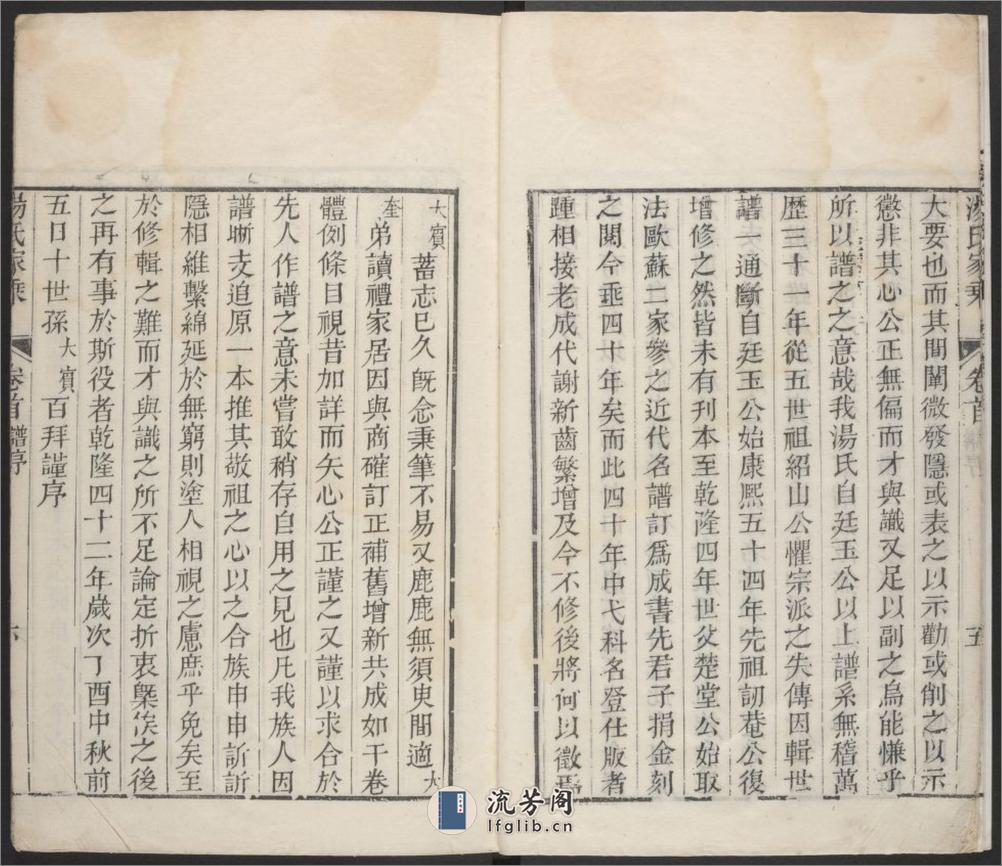 湯氏家乘
卷首
五
大要也而其間闡微發隱或表之以示勸或削之以示
懲非其心公正無偏而才與識又足以副之烏能慊乎
所以譜之之意哉我湯氏自廷玉公以上譜系無稽萬
歴三十一年從五世祖紹山公懼宗派之失傳因輯世
譜一通斷自廷玉公始康熈五十四年先祖訒菴公復
增修之然皆未有刊本至乾隆四年世父楚堂公始取
法歐蘇二家參之近代名譜訂爲成書先君子捐金刻
之閱今垂四十年矣而此四十年中弋科名登仕版者
踵相接老成代謝新齒繁增及今不修後將何以徵焉
大賓蓄志已久旣念秉筆不易又鹿鹿無須臾間適大
奎弟讀禮家居因與商確訂正補舊增新共成如干卷
體例條目視昔加詳而矢心公正謹之又謹以求合於
先人作譜之意未嘗敢稍存自用之見也凡我族人因
譜晰支追原一本推其敬祖之心以之合族申申訢訢
隱相維繫綿延於無窮則塗人相視之慮庶乎免矣至
於修輯之難而才與識之所不足論定折衷槩俟之後
之再有事於斯役者乾隆四十二年歲次丁酉中秋前
五日十世孫大賓百拜謹序
湯氏家乘
卷首 譜序
六
流芳阁
lfglib.cn